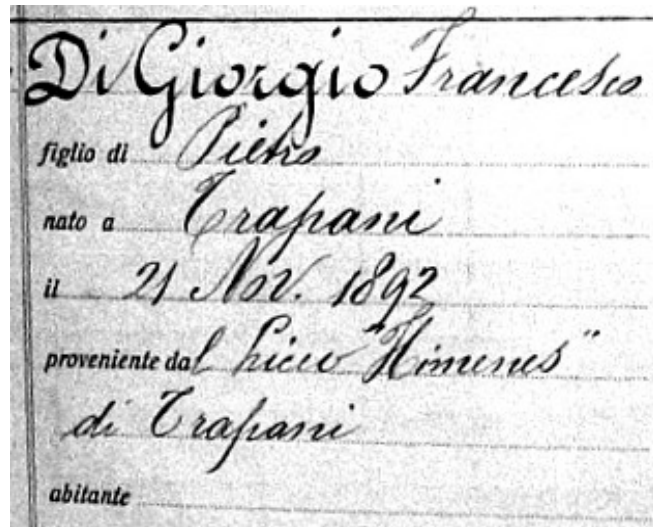 Di Giorgio Francesco
figlio di Pietro
nato a Trapani
il 21 Nov. 1892
proveniente dal Liceo "Ximenes"
di Trapani
abitante